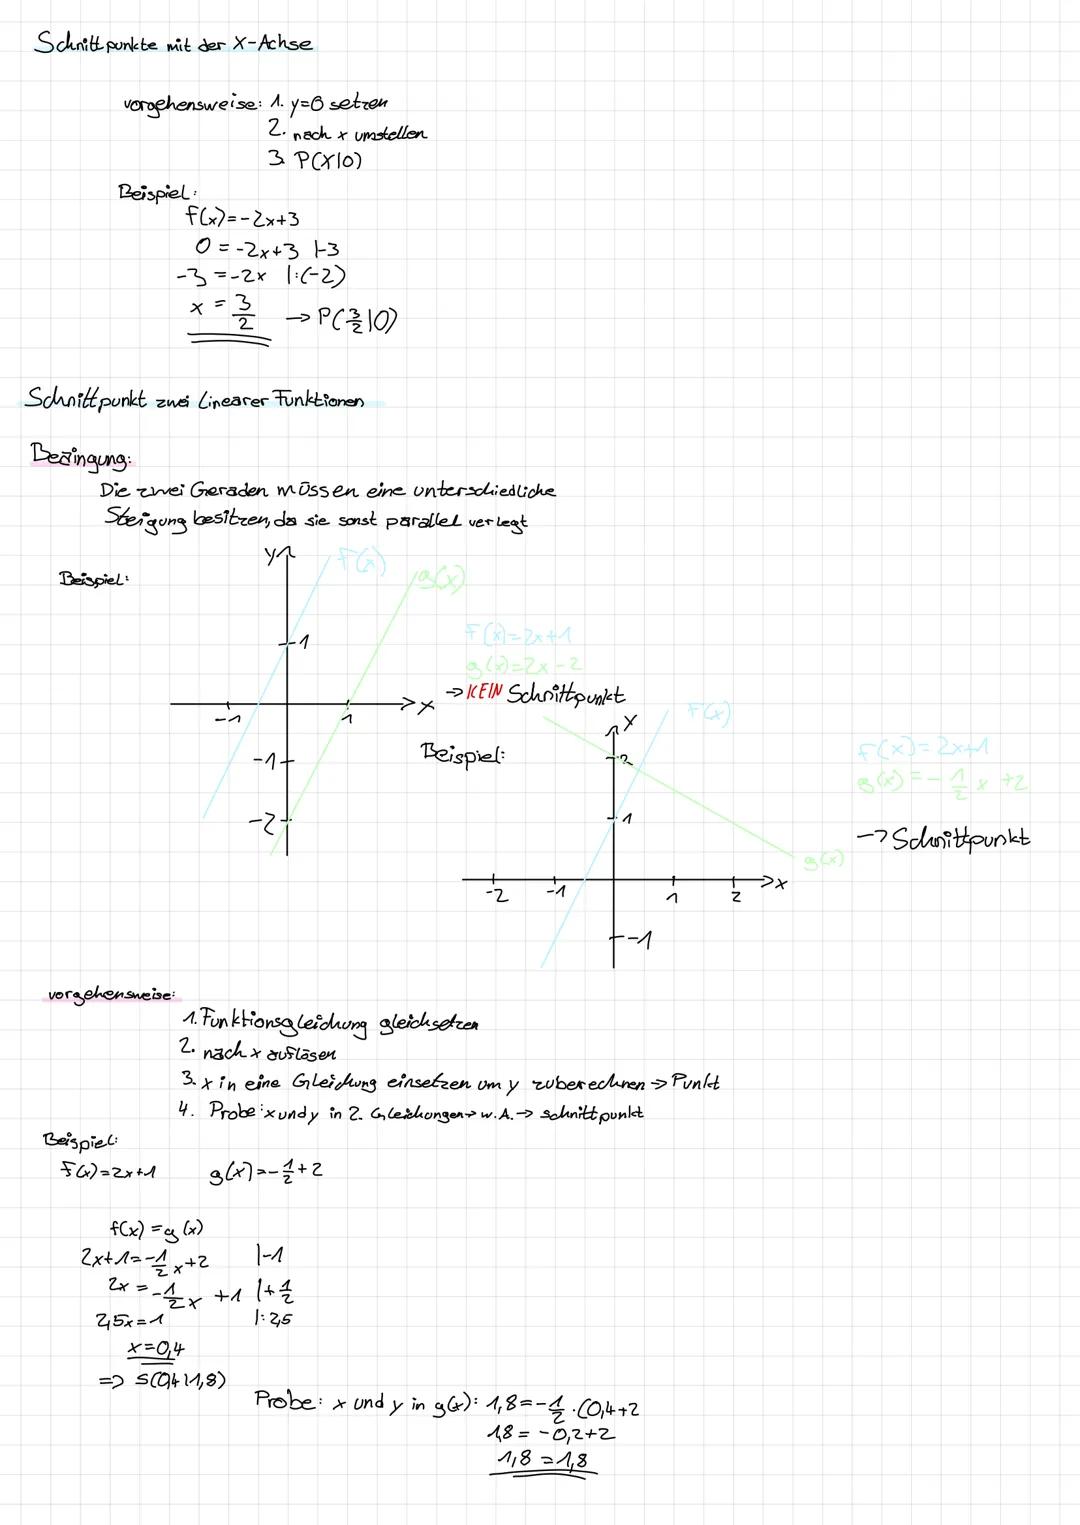 Schnittpunkte mit der X-Achse
vorgehensweise: 1. y=0 setzen
2. nach x umstellen
3. P(X|0)
Beispiel:
f(x)=-2x+3
0 = -2x+3 |-3
-3 = -2x |:(-2)
x = 3/2 → P(3/2|0)
Schnittpunkt zwei Linearer Funktionen
Bedingung:
Die zwei Geraden müssen eine unterschiedliche
Steigung besitzen, da sie sonst parallel verlegt
Beispiel:
y
f(x)
g(x)
1
-1
1
x
-1
-2
f(x)=2x+1
g(x)=2x-2
→ KEIN Schnittpunkt
Beispiel:
y
f(x)
2
1
g(x)
-2
-1
1
2
x
-1
f(x)=2x+1
g(x)=-1/2 x +2
→ Schnittpunkt
vorgehensweise:
1. Funktionsgleichung gleichsetzen
2. nach x auflösen
3. x in eine Gleichung einsetzen um y zuberechnen → Punkt
4. Probe: x und y in 2. Gleichungen → w.A. → schnittpunkt
Beispiel:
f(x)=2x+1 g(x)=-1/2+2
f(x)=g(x)
2x+1=-1/2 x+2 |-1
2x=-1/2 x +1 |+1/2
2,5x=1 |:2,5
x=0,4
=> S(0,4|1,8)
Probe: x und y in g(x): 1,8=-1/2·(0,4+2
1,8 = -0,2+2
1,8 = 1,8